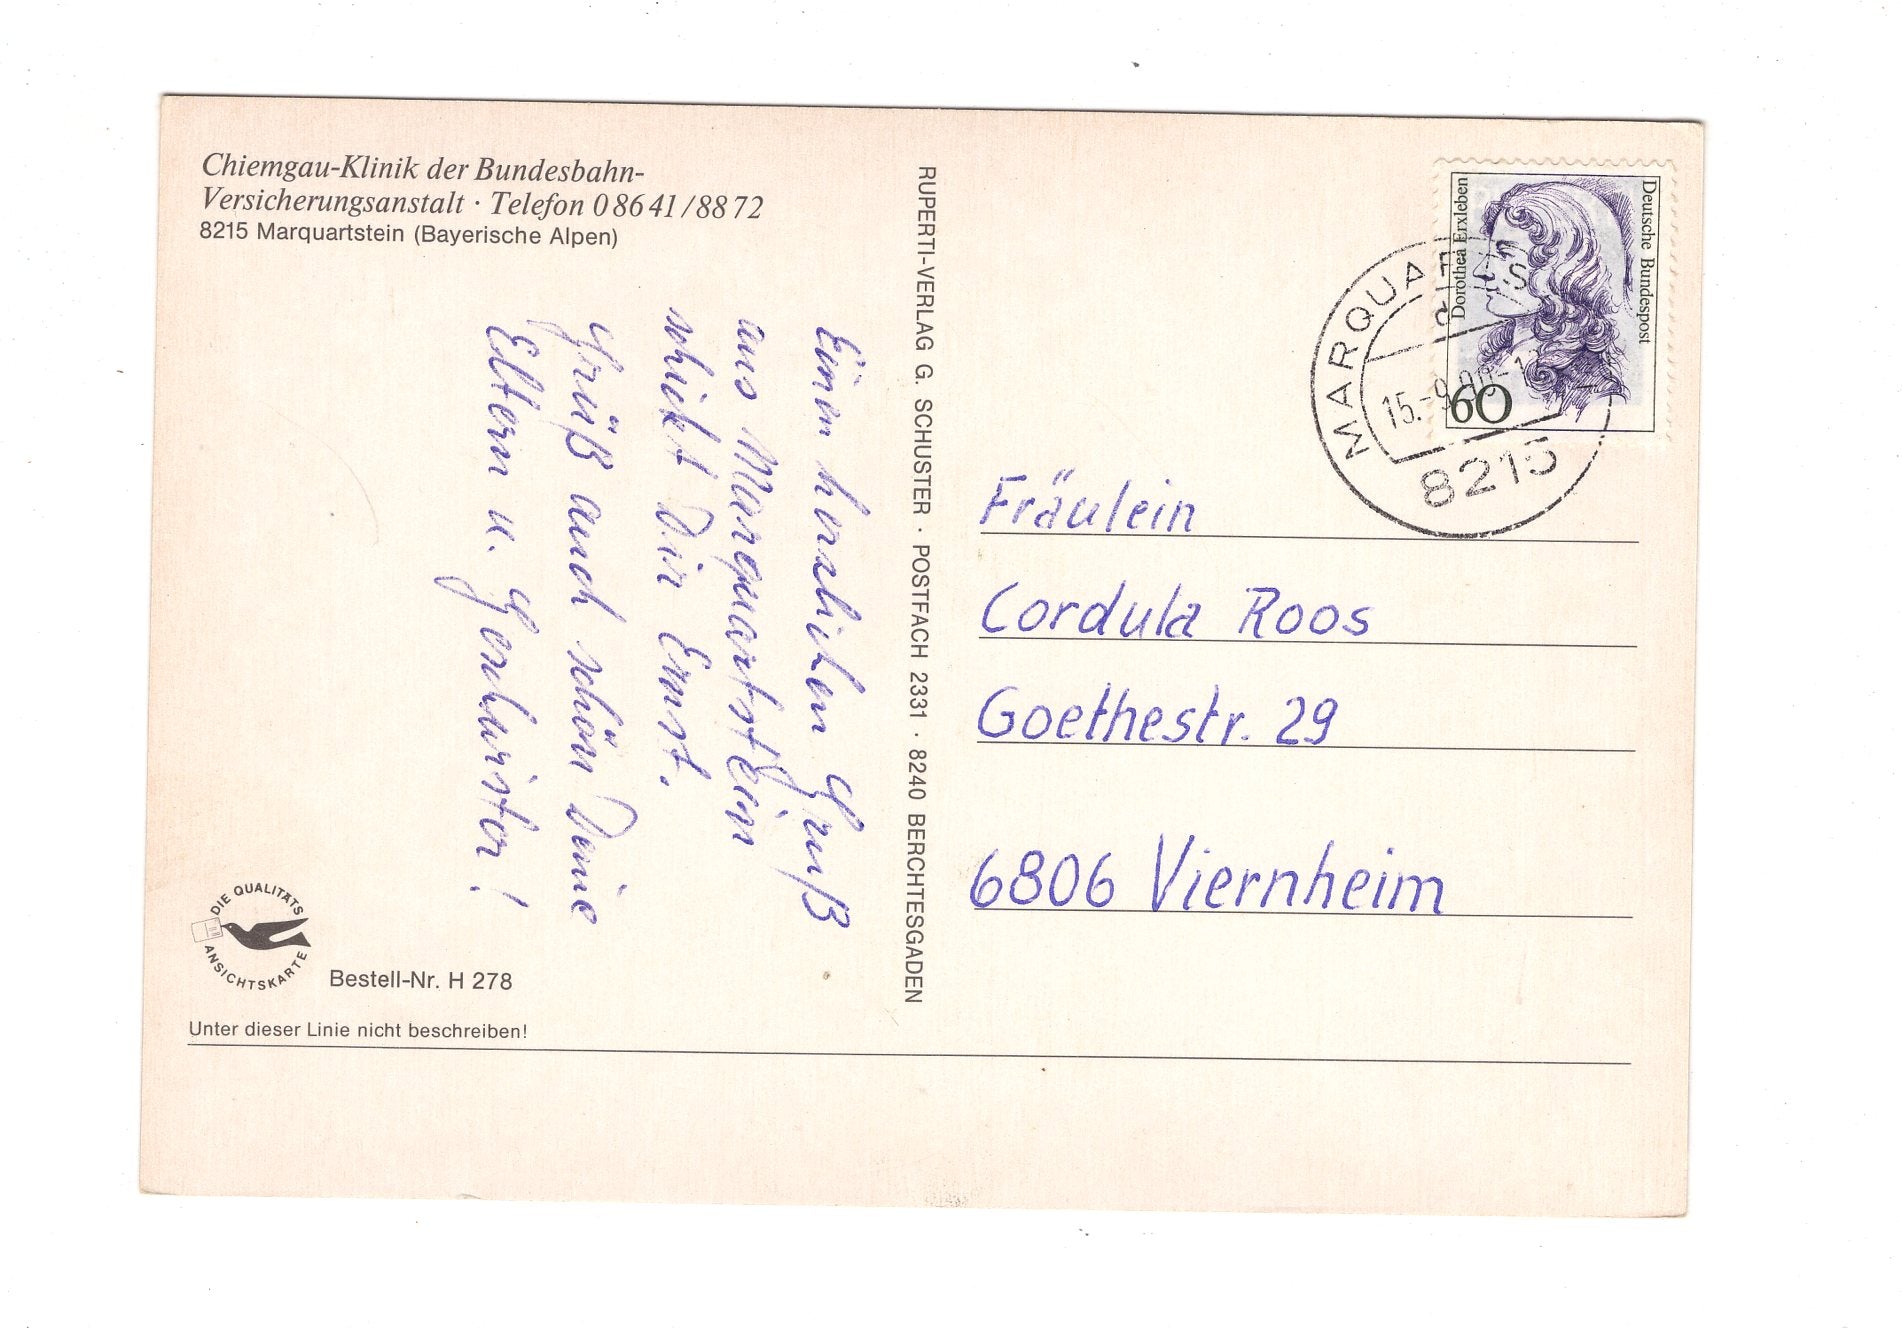 Chiemgau-Klinik der Bundesbahn-
Versicherungsanstalt · Telefon 0 86 41 / 88 72
8215 Marquartstein (Bayerische Alpen)
Einen herzlichen Gruß
aus Marquartstein
schickt Dir Ernst.
Grüß auch schön Deine
Eltern u. Geschwister!
DIE QUALITÄTS
ANSICHTSKARTE
Bestell-Nr. H 278
Unter dieser Linie nicht beschreiben!
RUPERTI-VERLAG G. SCHUSTER · POSTFACH 2331 · 8240 BERCHTESGADEN
Deutsche Bundespost
Dorothea Erxleben
60
15.-9.
8215
Fräulein
Cordula Roos
Goethestr. 29
6806 Viernheim